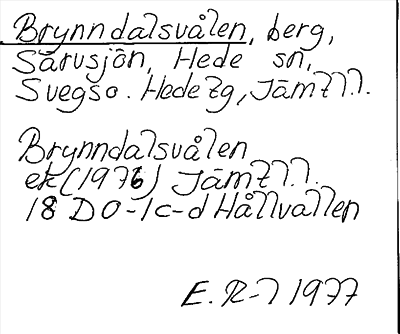 Brynndalsvålen, berg,
Särvsjön, Hede sn,
Svegs o. Hede tg, Jämtl.l.
Brynndalsvålen
ek (1976) Jämtl.l.
18 D 0-1c-d Hållvallen
E. R-l 1977